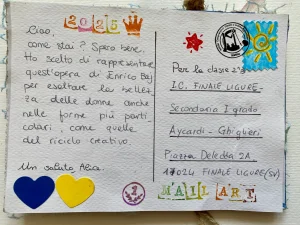 2025
Ciao,
come stai? Spero bene.
Ho scelto di rappresentare
quest'opera di Enrico Baj
per esaltare la bellez
za delle donne anche
nelle forme più parti
colari, come quelle
del riciclo creativo.
Un saluto, Alice.
Per la classe 2ª
I.C. FINALE LIGURE-
Secondaria I grado
Aycardi - Ghiglieri
Piazza Deledda 2A.
17024 FINALE LIGURE (SV)
MAIL ART